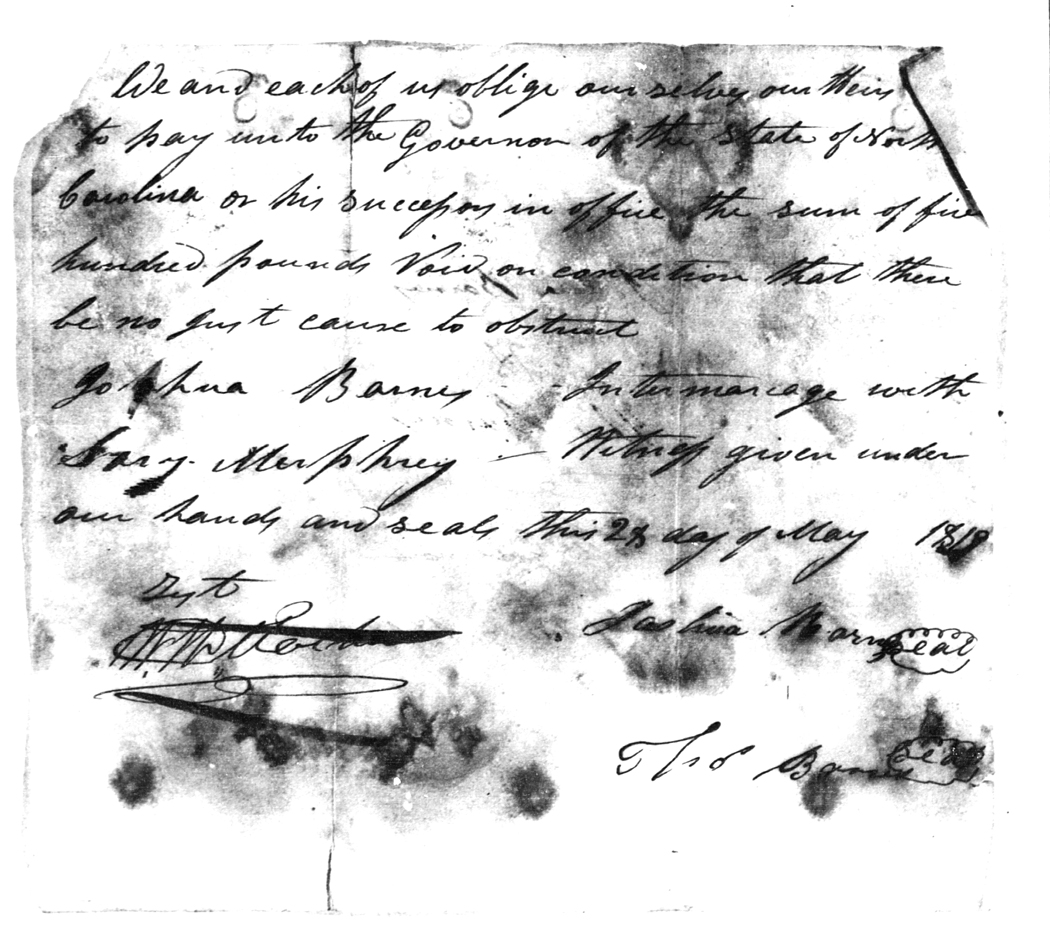 We and each of us oblige our selves our Heirs
to pay unto the Governor of the State of North
Carolina or his successors in office the sum of five
hundred pounds Void on condition that there
be no just cause to obstruct
Joshua Barnes Intermarage with
Sary Murphrey Witness given under
our hands and seals this 28 day of May 1818
Test
Joshua Barnes seal
Thos Barnes seal